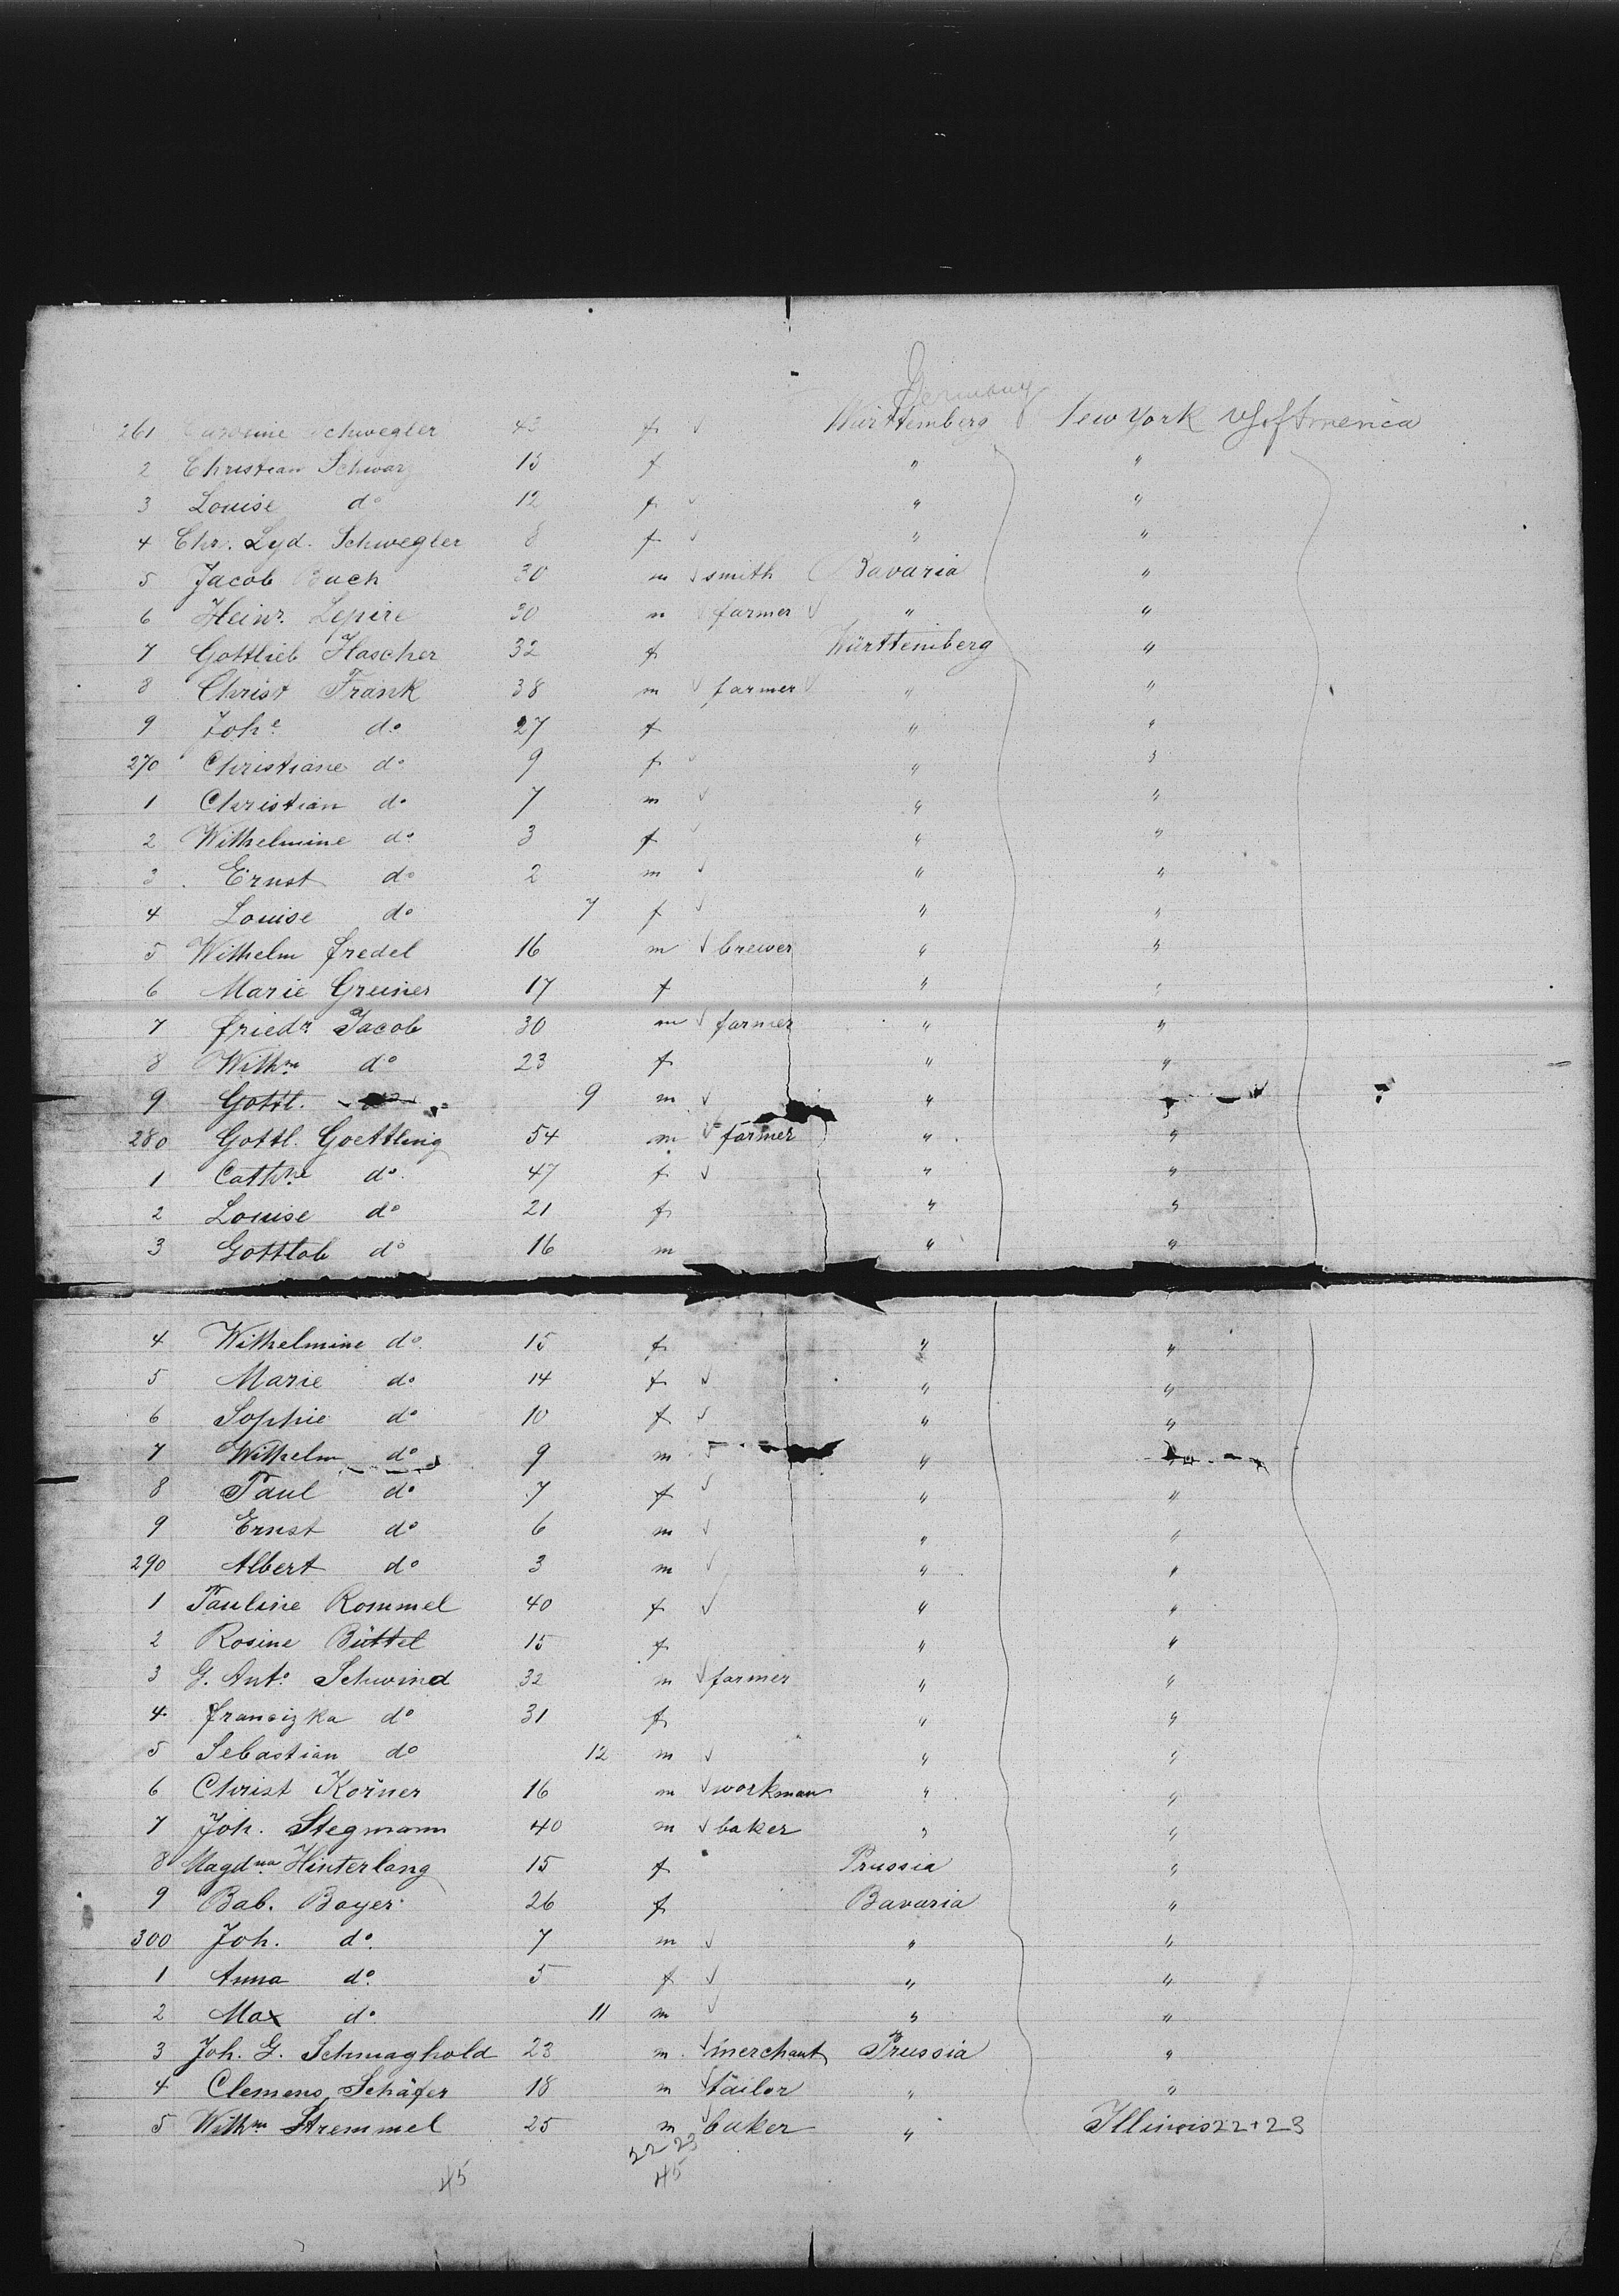 Germany
261 Caroline Schwegler 43 f Württemberg New York US of America
2 Christian Schwarz 15 f " "
3 Louise do 12 f " "
4 Chr. Lyd. Schwegler 8 f " "
5 Jacob Buch 30 m smith Bavaria "
6 Heinr. Lepire 30 m farmer " "
7 Gottlieb Hascher 32 f Württemberg "
8 Christ Frank 38 m farmer " "
9 Johe do 27 f " "
270 Christiane do 9 f " "
1 Christian do 7 m " "
2 Wilhelmine do 3 f " "
3 Ernst do 2 m " "
4 Louise do 7 f " "
5 Wilhelm Fredel 16 m brewer " "
6 Marie Greiner 17 f " "
7 Friedr Jacob 30 m farmer " "
8 Wilhm do 23 f " "
9 Gottl. do 9 m " "
280 Gottl. Goettling 54 m farmer " "
1 Cathne do 47 f " "
2 Louise do 21 f " "
3 Gottlob do 16 m " "
4 Wilhelmine do 15 f " "
5 Marie do 14 f " "
6 Sophie do 10 f " "
7 Wilhelm do 9 m " "
8 Paul do 7 f " "
9 Ernst do 6 m " "
290 Albert do 3 m " "
1 Pauline Rommel 40 f " "
2 Rosine Büttel 15 f " "
3 G. Anto Schwind 32 m farmer " "
4 Franzizka do 31 f " "
5 Sebastian do 12 m " "
6 Christ Körner 16 m workman " "
7 Joh. Stegmann 40 m baker " "
8 Magdna Hinterlang 15 f Prussia "
9 Bab. Bayer 26 f Bavaria "
300 Joh. do 7 m " "
1 Anna do 5 f " "
2 Max do 11 m " "
3 Joh. G. Schmaghold 23 m merchant Prussia "
4 Clemens Schäfer 18 m tailor " "
5 Wilhm Stremmel 25 m baker " Illinois 22+23
22 23
45 45